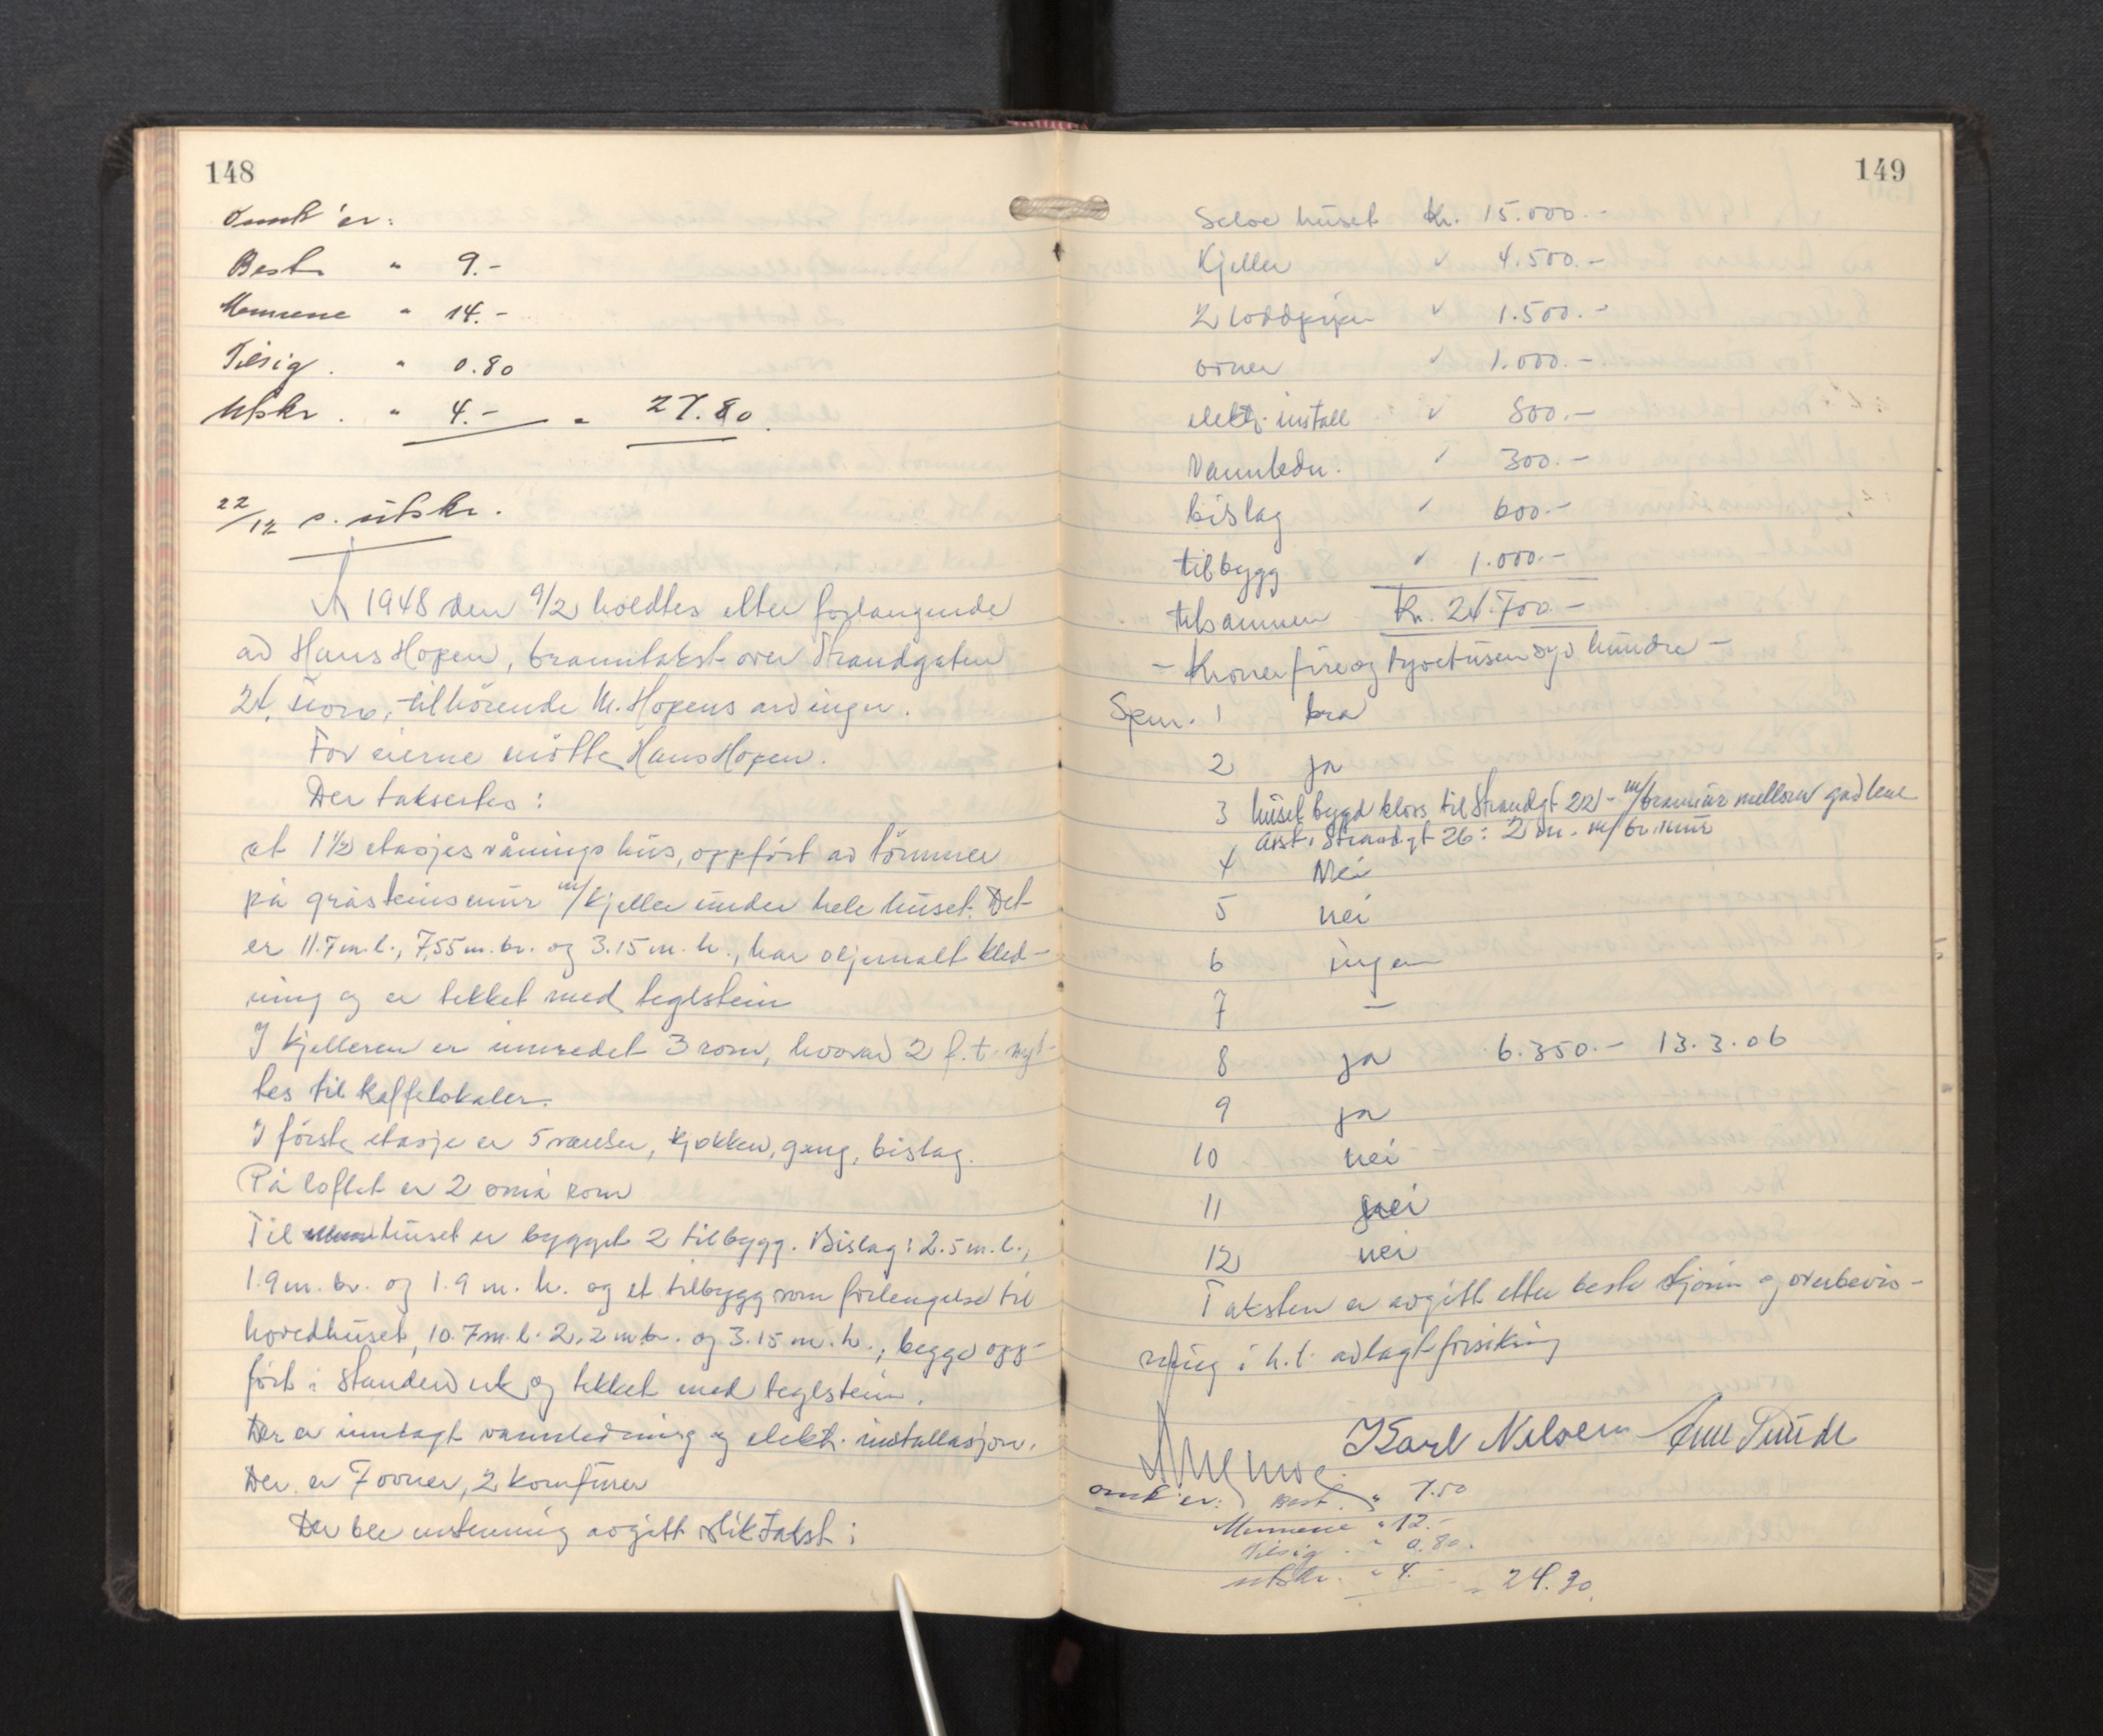 148
Omk'er:
Best. " 9.-
Mennene " 14.-
Tilsig. " 0.80
Utskr. " 4.- = 27.80.
22/12 s. utskr.
År 1948 den 9/2 holdtes etter forlangende
av Hans Hopen, branntakst over Strandgaten
24, tilhörende M. Hopens arvinger.
For eierne mötte Hans Hopen.
Der taksertes:
et 1½ etasjes våningshus, oppfört av tömmer
på gråsteinsmur m/kjeller under hele huset. Det
er 11.7 m.l., 7,55 m.br. og 3.15 m.h., har oljemalt kled-
ning og er tekket med teglstein
I kjelleren er innredet 3 rom, hvorav 2 f.t. nyt-
tes til kaffelokaler.
I förste etasje er 5 værelser, kjökken, gang, bislag.
På loftet er 2 små rom
Til huset er bygget 2 tilbygg. Bislag: 2.5 m.l.,
1.9 m.br. og 1.9 m.h. og et tilbygg som forlengelse til
hovedhuset, 10.7 m.l. 2.2 m br. og 3.15 m.h., begge opp-
fört i standerverk og tekket med teglstein.
Der er inntagt vannledning og elektr. installasjon.
Der er 7 ovner, 2 komfurer
Der ble enstemmig avgitt slik takst:
149
Selve huset Kr. 15.000.-
Kjeller " 4.500.-
2 loddpiper " 1.500.-
ovner " 1.000.-
elektr. install " 800.-
Vannledn. " 300.-
bislag " 600.-
tilbygg " 1.000.-
tilsammen Kr. 24.700.-
- Kroner fireogtyvetusensyvhundre -
Spm. 1 bra
2 ja
3 huset bygd kloss til Strandgt 22 - m/brannmur mellom gavlene
avst. Strandgt 26: 2 m. m/br.mur
4 Nei
5 nei
6 ingen
7 -
8 ja 6.350.- 13.3.06
9 ja
10 nei
11 nei
12 nei
Taksten er avgitt etter beste skjönn og overbevis-
ning i h.t. avlagt forsikring
Karl Nilsen
Omk'er: Best. " 7.50
Mennene " 12.-
Tilsig. " 0.80.
utskr. " 4.- = 24.30.